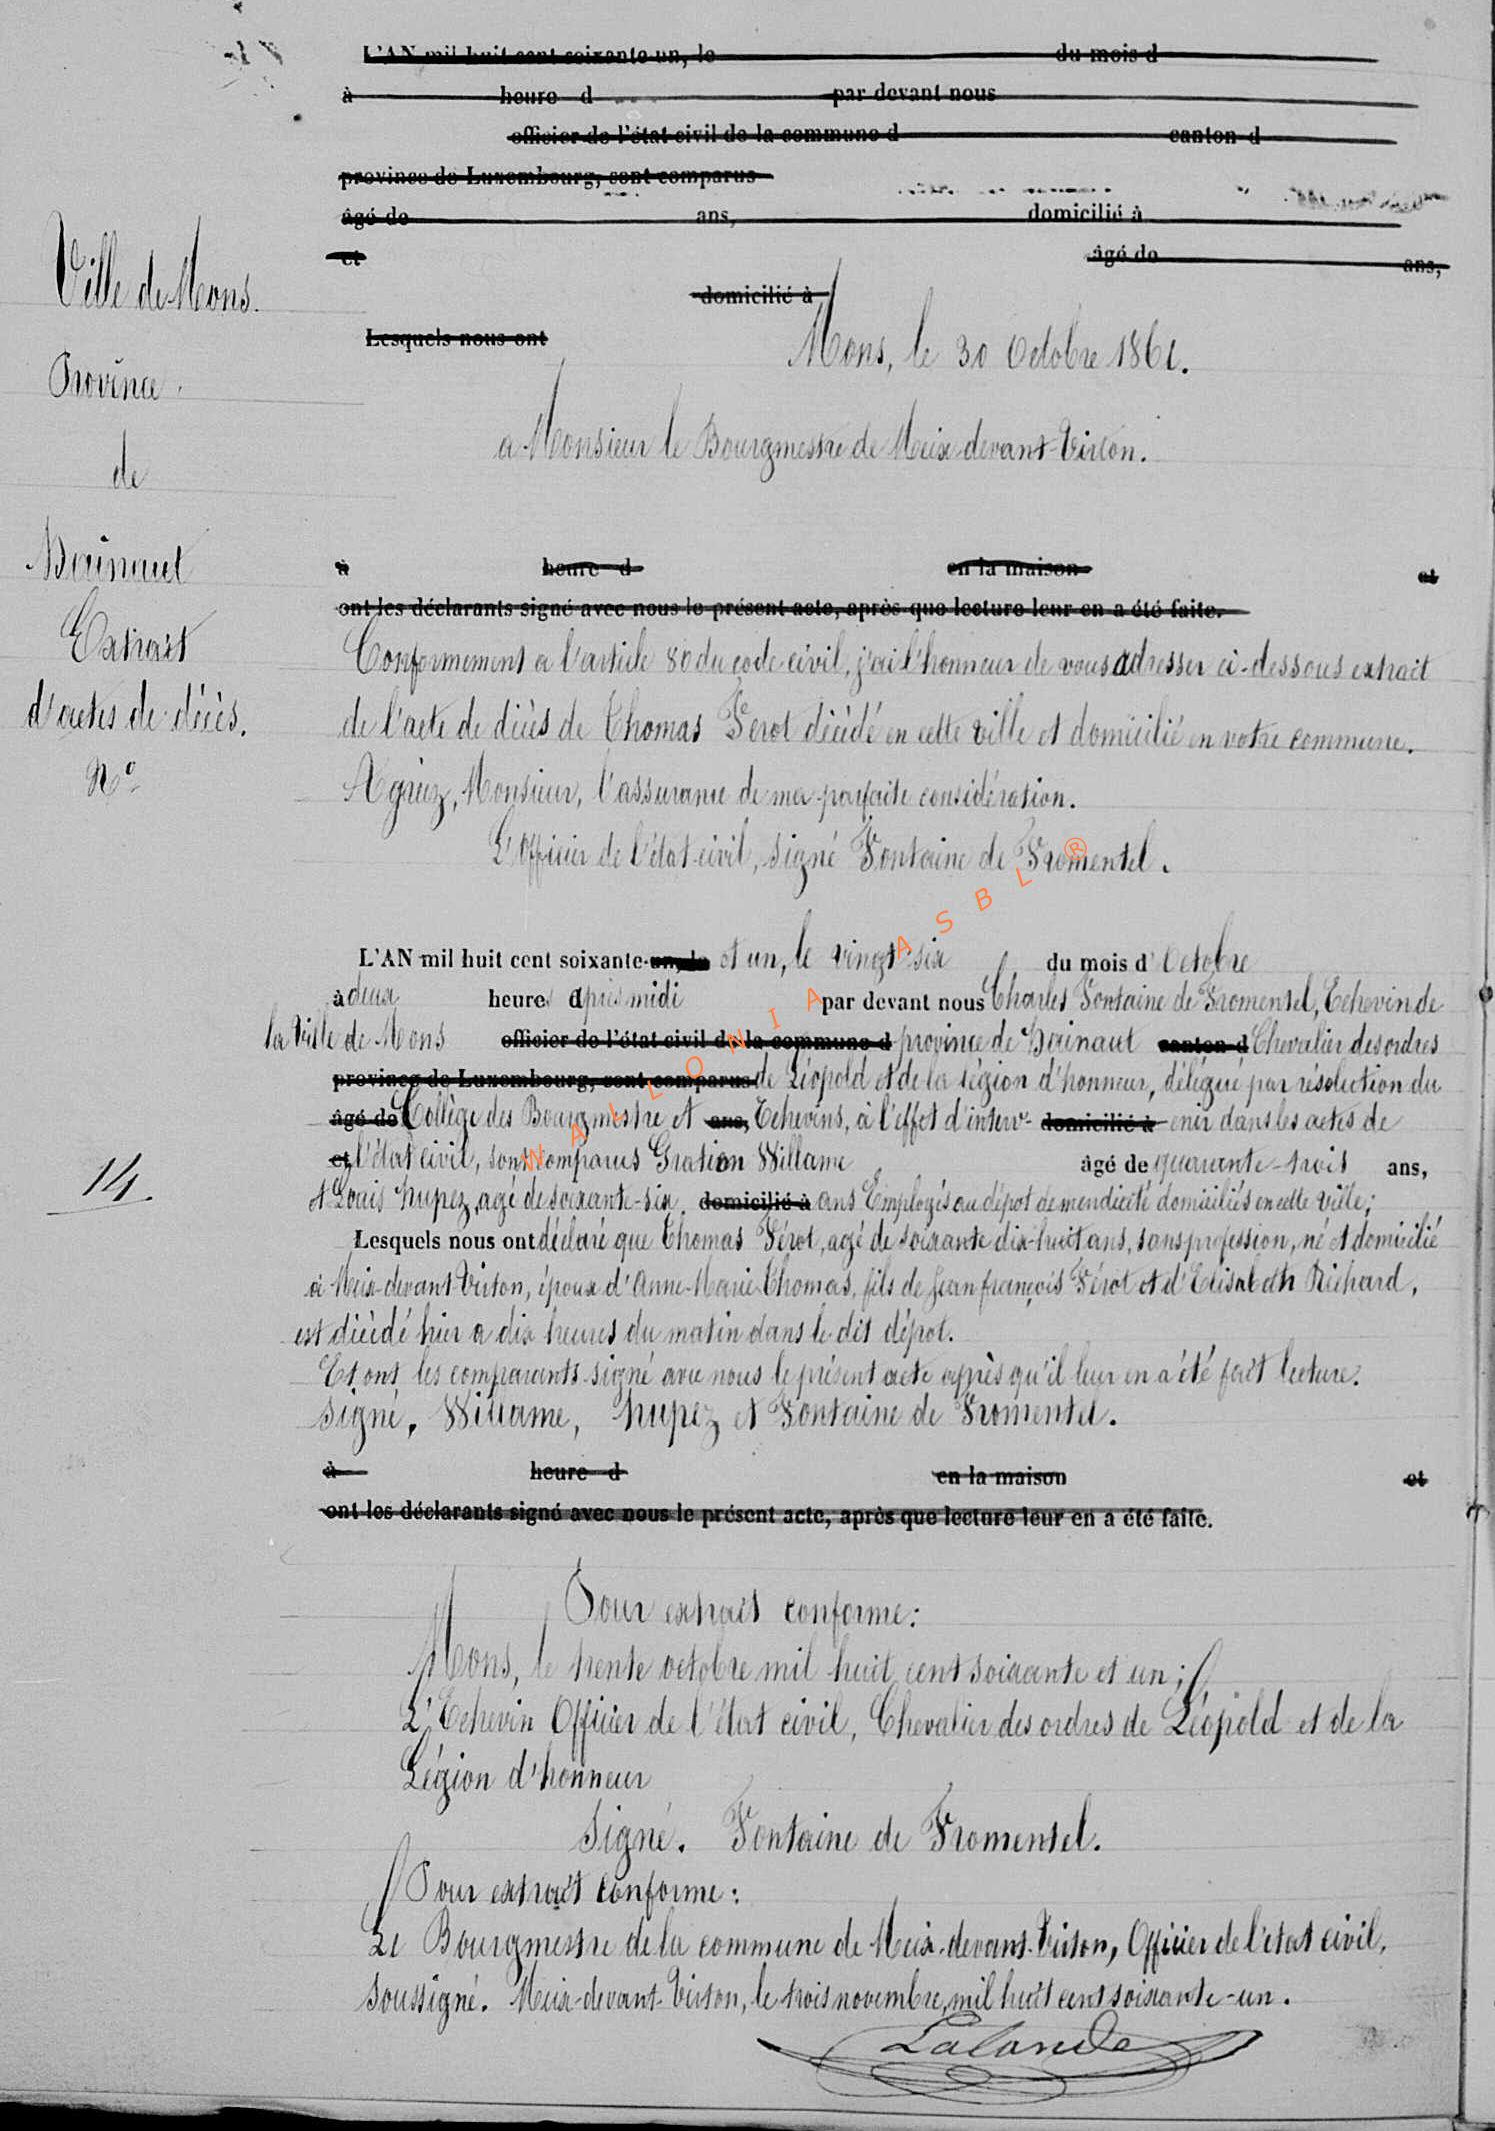 L'AN mil huit cent soixante-un, le du mois d
à heure d par devant nous
officier de l'état civil de la commune d canton d
province de Luxembourg, sont comparus
âgé de ans, domicilié à
et âgé de ans,
domicilié à
Lesquels nous ont
Ville de Mons.
Province
de
Hainaut
Extrait
d'actes de décès.
No
Mons, le 30 Octobre 1861.
a Monsieur le Bourgmestre de Meix devant-Virton.
à heure d en la maison et
ont les déclarants signé avec nous le présent acte, après que lecture leur en a été faite.
Conformement a l'article 80 du code civil, j'ai l'honneur de vous adresser ci-dessous extrait
de l'acte de décès de Thomas Férot décédé en cette ville et domicilié en votre commune.
Agréez, Monsieur, l'assurance de ma parfaite considération.
L'Officier de l'état-civil, signé Fontaine de Fromentel.
14.
L'AN mil huit cent soixante-un, le et un, le vingt-six du mois d'Octobre
à deux heures après midi par devant nous Charles Fontaine de Fromentel, Echevin de
la Ville de Mons officier de l'état civil de la commune d province de Hainaut canton d Chevalier des ordres
province de Luxembourg, sont comparus de Léopold et de la légion d'honneur, délégué par résolution du
âgé de Collège des Bourgmestre et ans, Echevins, à l'effet d'interv- domicilié à enir dans les actes de
et l'état civil, sont comparus Gratien Willame âgé de quarante-trois ans,
et Louis hupez, agé de soixante-six, domicilié à ans Employés au dépot de mendicité domiciliés en cette ville;
Lesquels nous ont déclaré que Thomas Férot, agé de soixante dix-huit ans, sans profession, né et domicilié
à Meix-devant-Virton, époux d'Anne-Marie Thomas, fils de Jean françois Férot et d'Elisabeth Richard,
est décédé hier a dix heures du matin dans le dit dépot.
Et ont les comparants signé avec nous le présent acte après qu'il leur en a été fait lecture.
Signé, Willame, hupez et Fontaine de Fromentel.
à heure d en la maison et
ont les déclarants signé avec nous le présent acte, après que lecture leur en a été faite.
Pour extrait conforme:
Mons, le trente octobre mil huit cent soixante et un;
L'Echevin Officier de l'état civil, Chevalier des ordres de Léopold et de la
Légion d'honneur
Signé. Fontaine de Fromentel.
Pour extrait conforme:
Le Bourgmestre de la commune de Meix-devant-Virton, Officier de l'état civil,
soussigné. Meix-devant-Virton, le trois novembre, mil huit cent soixante-un.
Lalande
WALLONIA ASBL ®